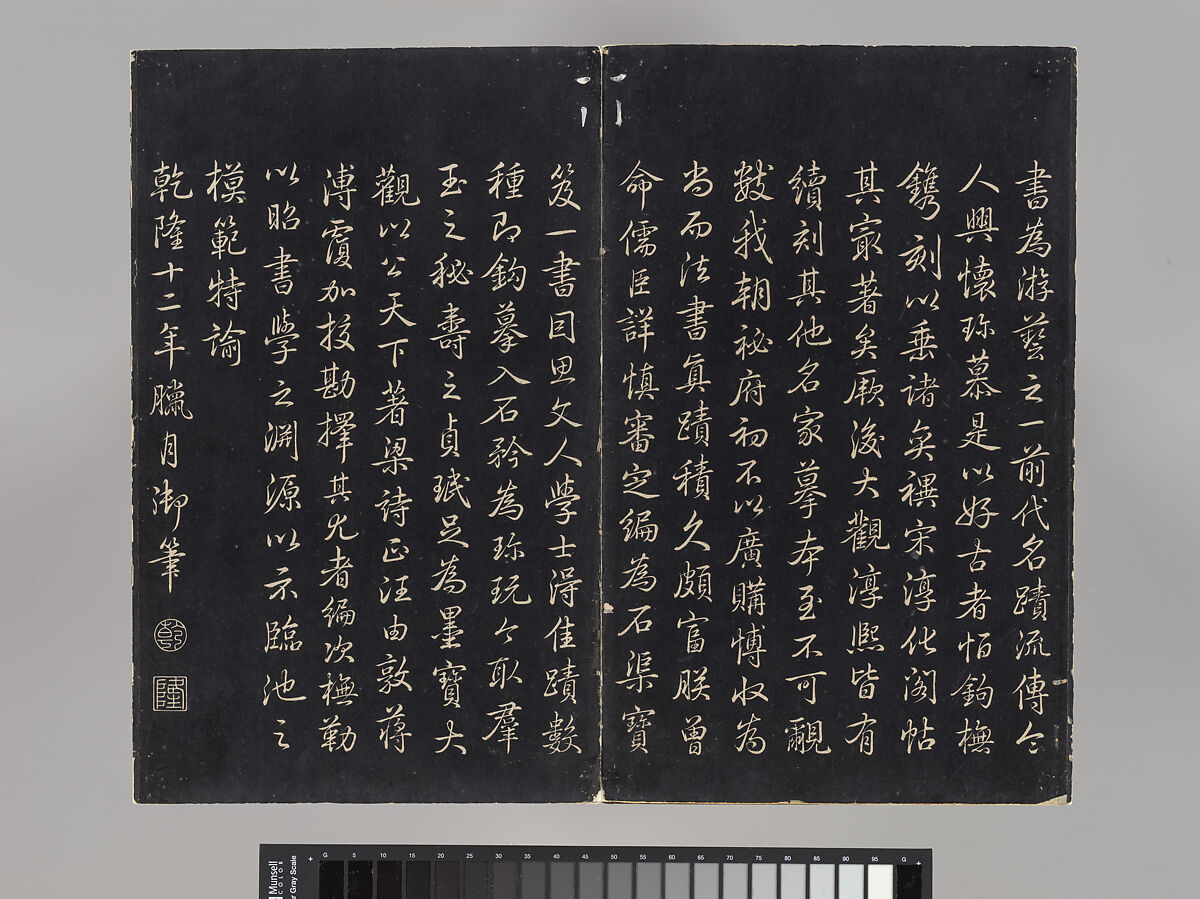 書為游藝之一前代名蹟流傳令
人興懷珎慕是以好古者怕鈎橅
鐫刻以垂諸奕禩宋淳化閣帖
其㝡著矣厥後大觀淳熙皆有
續刻其他名家摹本至不可覼
數我朝秘府初不以廣購博收為
尚而法書真蹟積久頗富朕曾
命儒臣詳慎審定編為石渠寶
笈一書因思文人學士得佳蹟數
種即鈎摹入石矜為珎玩今取羣
玉之秘壽之貞珉足為墨寶大
觀以公天下著梁詩正汪由敦蔣
溥覆加挍勘擇其尤者編次橅勒
以昭書學之淵源以示臨池之
模範特諭
乾隆十二年臘月御筆
乾
隆
Munsell
COLOR
Gray Scale
G 5 10 15 20 25 30 35 40 45 50 55 60 65 70 75 80 85 90 95 G